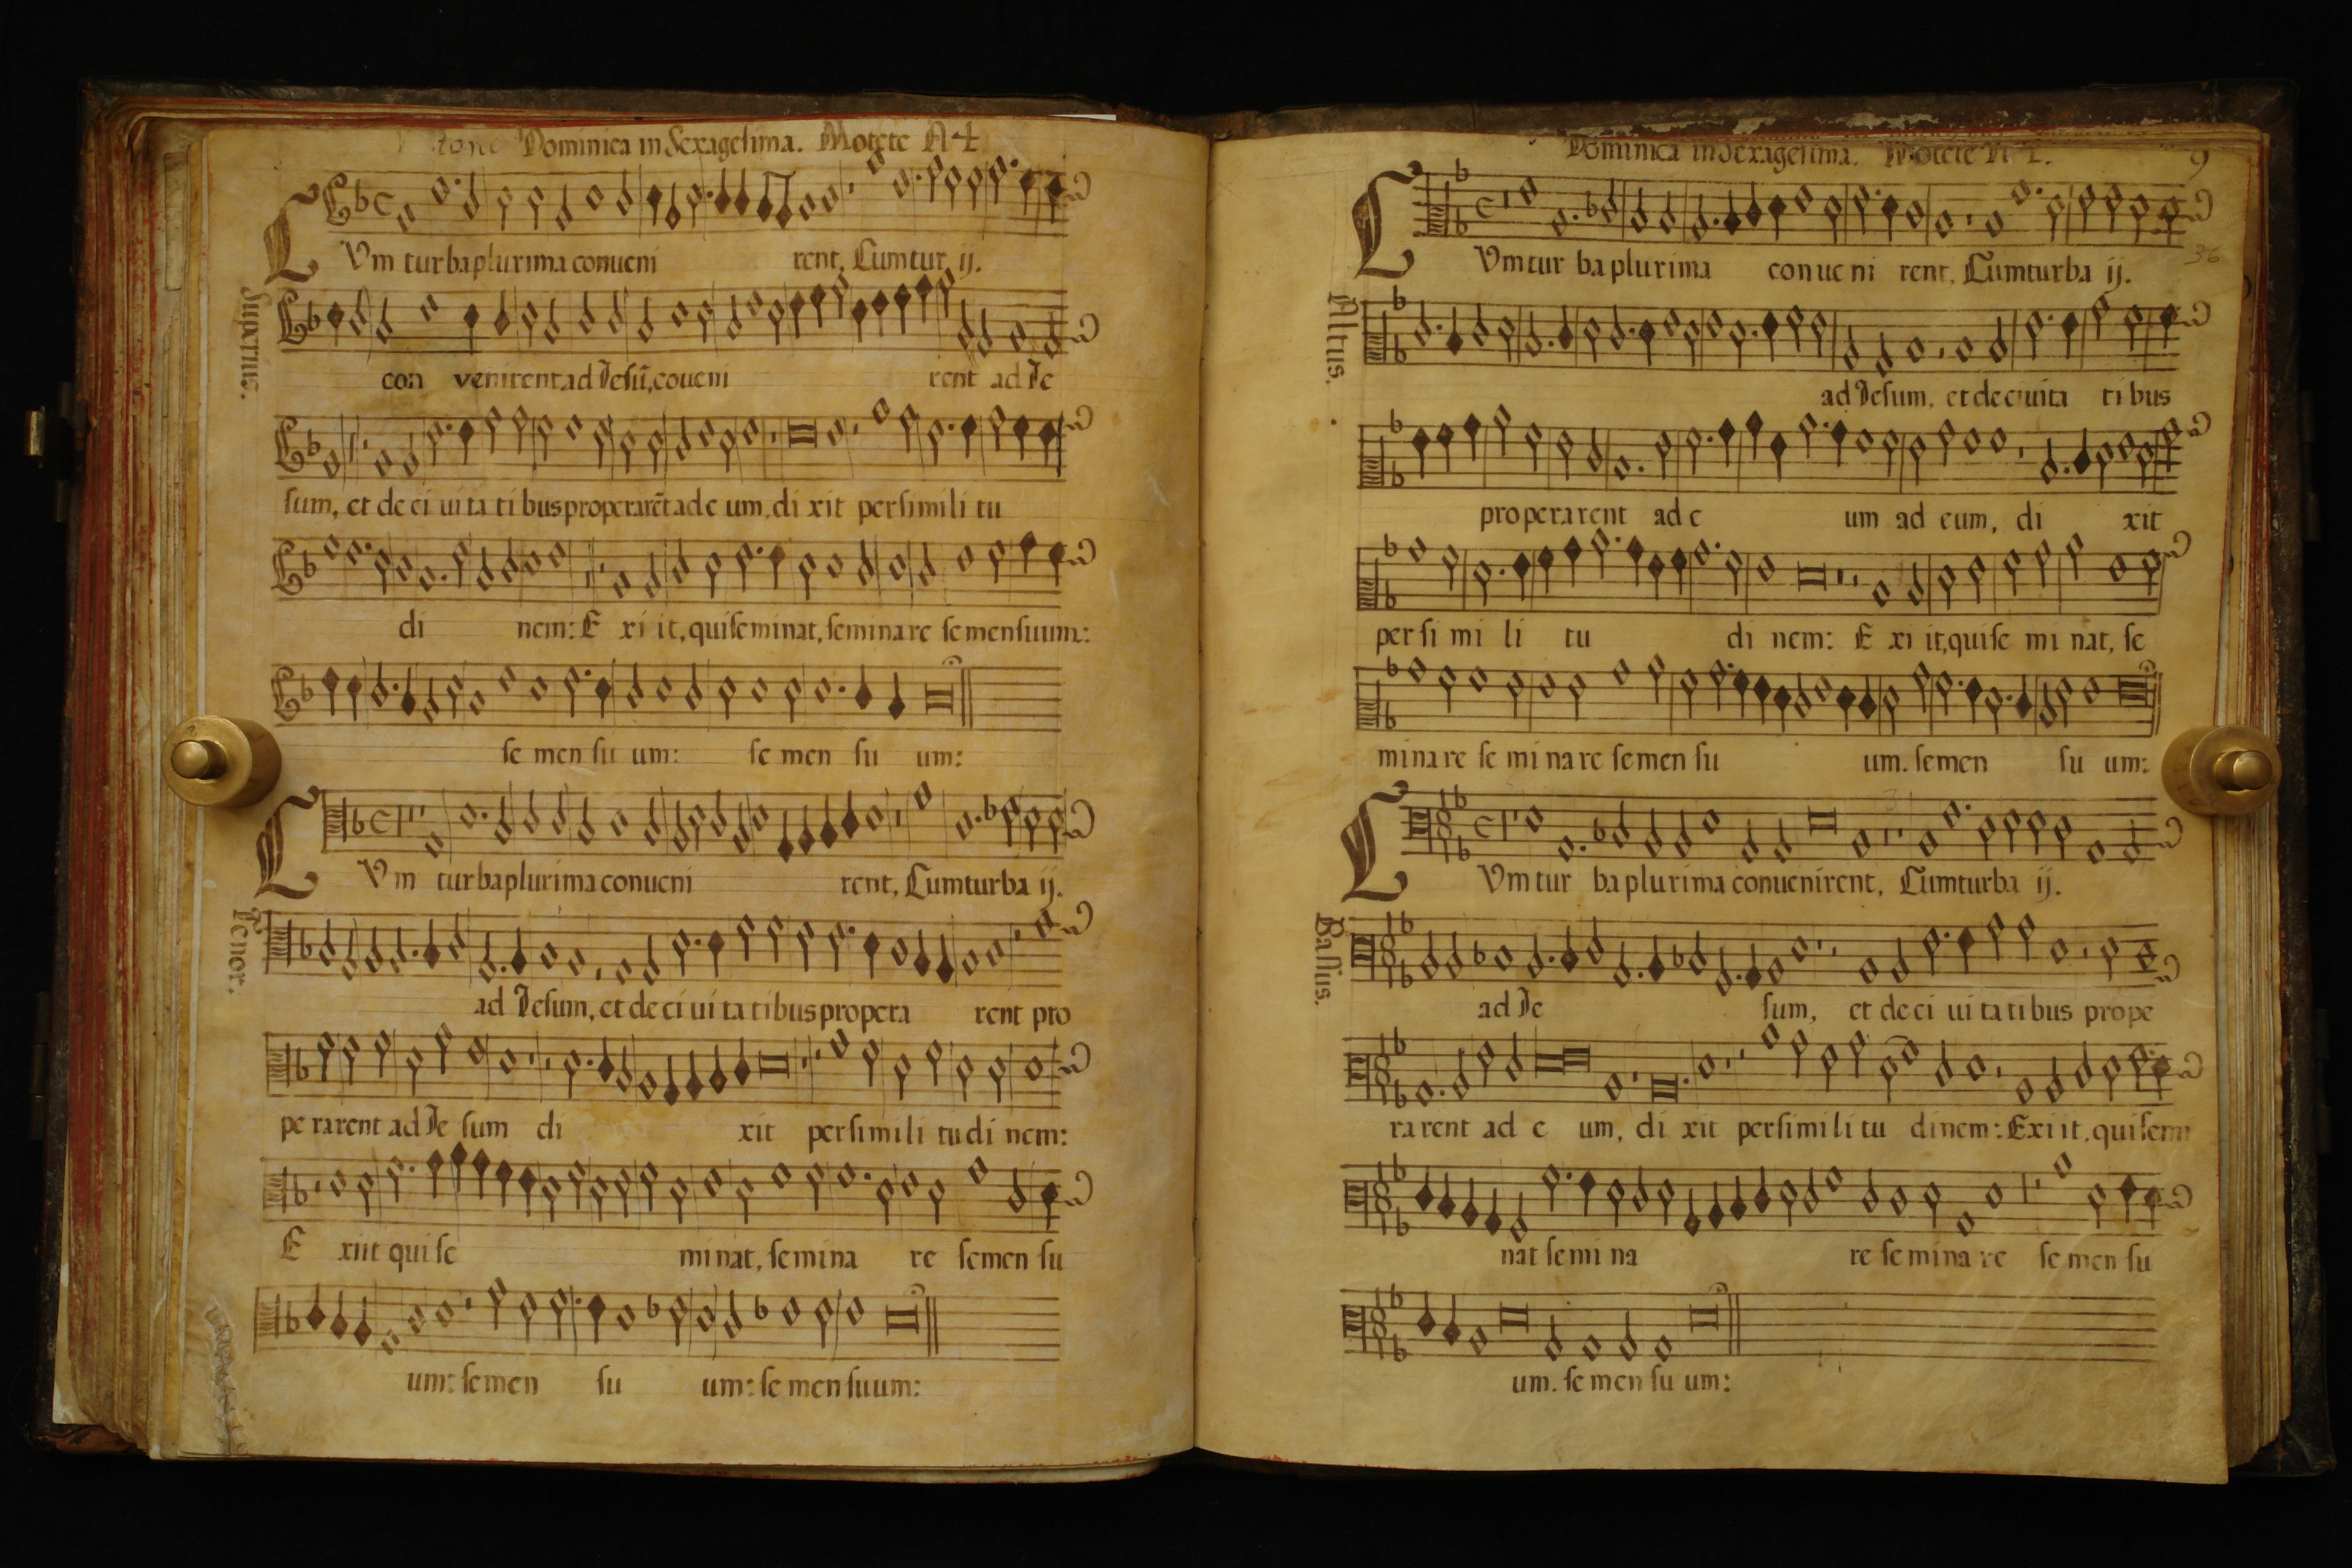 Dominica in Sexagesima. Motete A 4
CVm tur ba plurima conueni rent, Cum tur ij.
Superius.
con venirent ad Jesū, coueni rent ad Je
sum, et de ci ui ta ti bus properarēt ad e um, di xit per simili tu
di nem: E xi it, qui seminat, seminare semen suum:
se men su um: se men su um:
CVm turba plurima conueni rent, Cum turba ij.
Tenor.
ad Jesum, et de ci ui ta tibus propera rent pro
pe rarent ad Je sum di xit per simili tudi nem:
E xiit qui se minat, semina re semen su
um: semen su um: se men suum:
Dominica in Sexagesima. Motete A 4.
9
36
CVm tur ba plurima con ue ni rent, Cum turba ij.
Altus.
ad Jesum, et de ciuita ti bus
properarent ad e um ad eum, di xit
per si mi li tu di nem: E xi it, qui se mi nat, se
minare se mi nare semen su um. semen su um:
CVm tur ba plurima conuenirent, Cum turba ij.
Bassus.
ad Je sum, et de ci ui ta ti bus prope
rarent ad e um, di xit per simili tu dinem: Exiit, qui semi
nat semi na re se mina re se men su
um. se men su um: